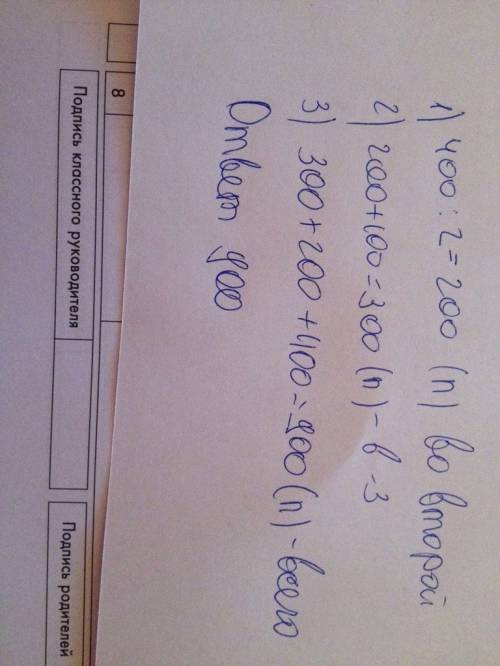 1) 400 : 2 = 200 (п) во второй
2) 200 + 100 = 300 (п) - в - 3
3) 300 + 200 + 400 = 900 (п) - всего
Ответ 900
8
Подпись классного руководителя
Подпись родителей